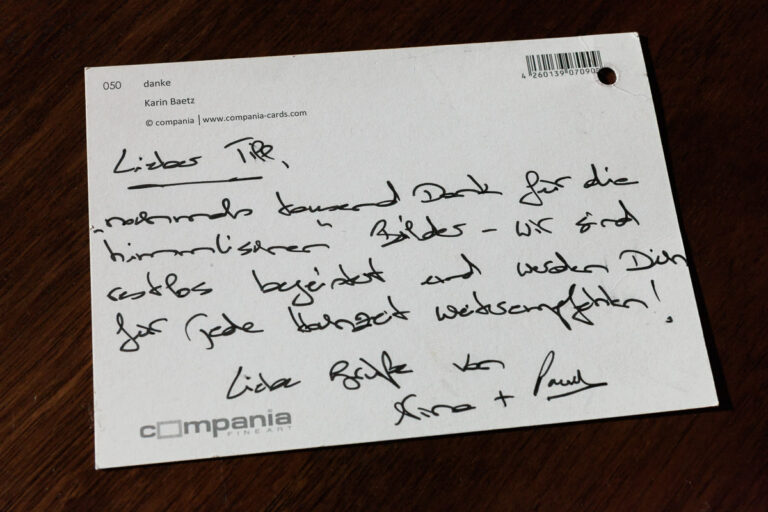 050 danke
Karin Baetz
© compania | www.compania-cards.com
4 260139 07090
Lieber Till,
nochmals tausend Dank für die
"himmlischen" Bilder – wir sind
restlos begeistert und werden Dich
für jede Hochzeit weiterempfehlen!
Liebe Grüße von
Nina +
compania
FINE ART